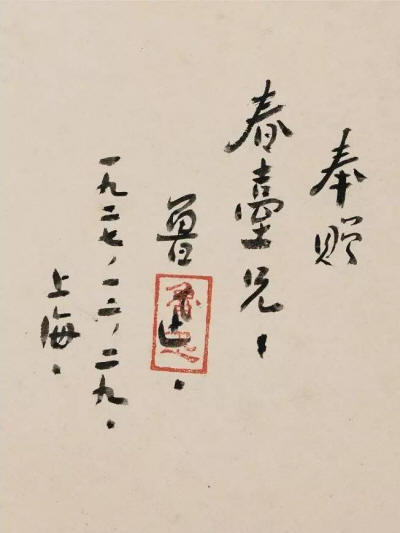 奉贈
春臺兄，
魯迅．
一九二七，一二，二九．
上海．